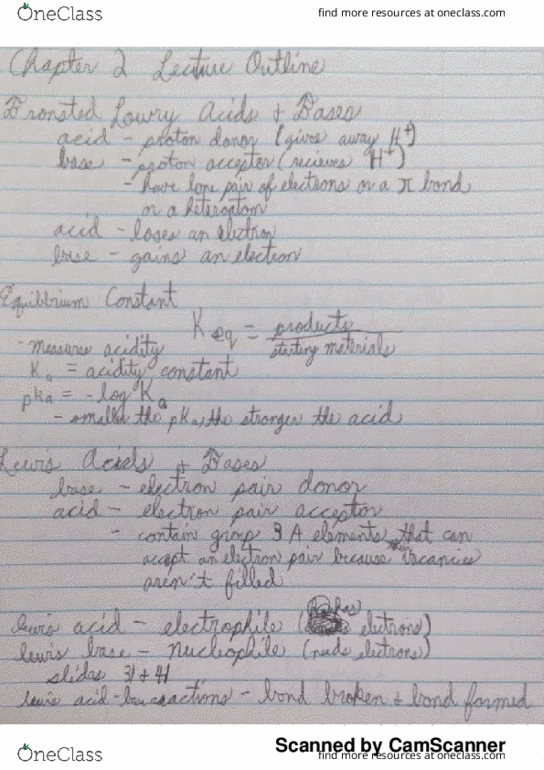 OneClass
find more resources at oneclass.com
Chapter 2 Lecture Outline
Bronsted Lowry Acids + Bases
acid - proton donor (gives away H+)
base - proton acceptor (recieves H+)
- have lone pair of electrons or a π bond
on a heteroatom
acid - loses an electron
base - gains an electron
Equilibrium Constant
Keq = products
starting materials
- measures acidity
Ka = acidity constant
pKa = -log Ka
- smaller the pKa, the stronger the acid
Lewis Acids + Bases
base - electron pair donor
acid - electron pair acceptor
- contain group 3A elements that can
accept an electron pair because vacancies
aren't filled
lewis acid - electrophile ( has electrons)
lewis base - nucleophile (needs electrons)
slides 31 + 41
lewis acid-base reactions - bond broken + bond formed
Scanned by CamScanner
OneClass
find more resources at oneclass.com